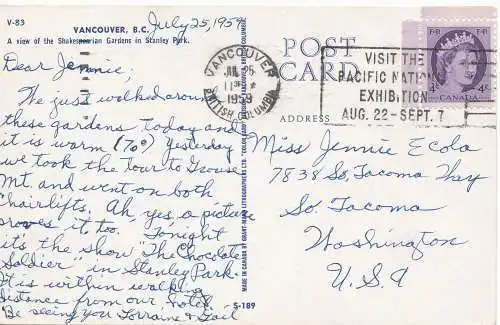 V-83
VANCOUVER, B.C.
A view of the Shakespearian Gardens in Stanley Park.
July 25, 1959
Dear Jennie,
The guys walked around
these gardens today and
it is warm (70°) Yesterday
we took the Tour to Grouse
Mt. and went on both
Chairlifts. Ah, yes a picture
proves it, too. Tonight
it's the show "The Chocolate
Soldier" in Stanley Park.
It is within walking
distance from our hotel.
Be seeing you Lorraine & Gail
MADE IN CANADA BY GRANT-MANN LITHOGRAPHERS LTD.
S-189
POST
CARD
ADDRESS
VANCOUVER
JUL 25
1959
BRITISH COLUMBIA
VISIT THE
PACIFIC NATIONAL
EXHIBITION
AUG. 22 - SEPT. 7
E II R
4¢ 4¢
CANADA
Miss Jennie Ecola
7838 So. Tacoma Way
So. Tacoma
Washington
U.S.A